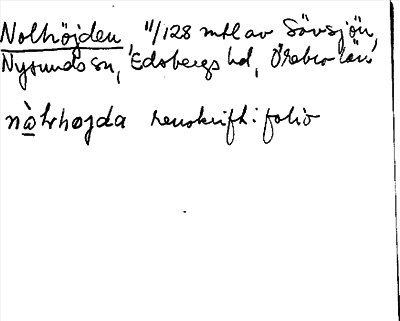 Nolhöjden, 11/128 mtl av Sövsjön,
Nysunds sn, Edsbergs hd, Örebro län
renskrift: folio